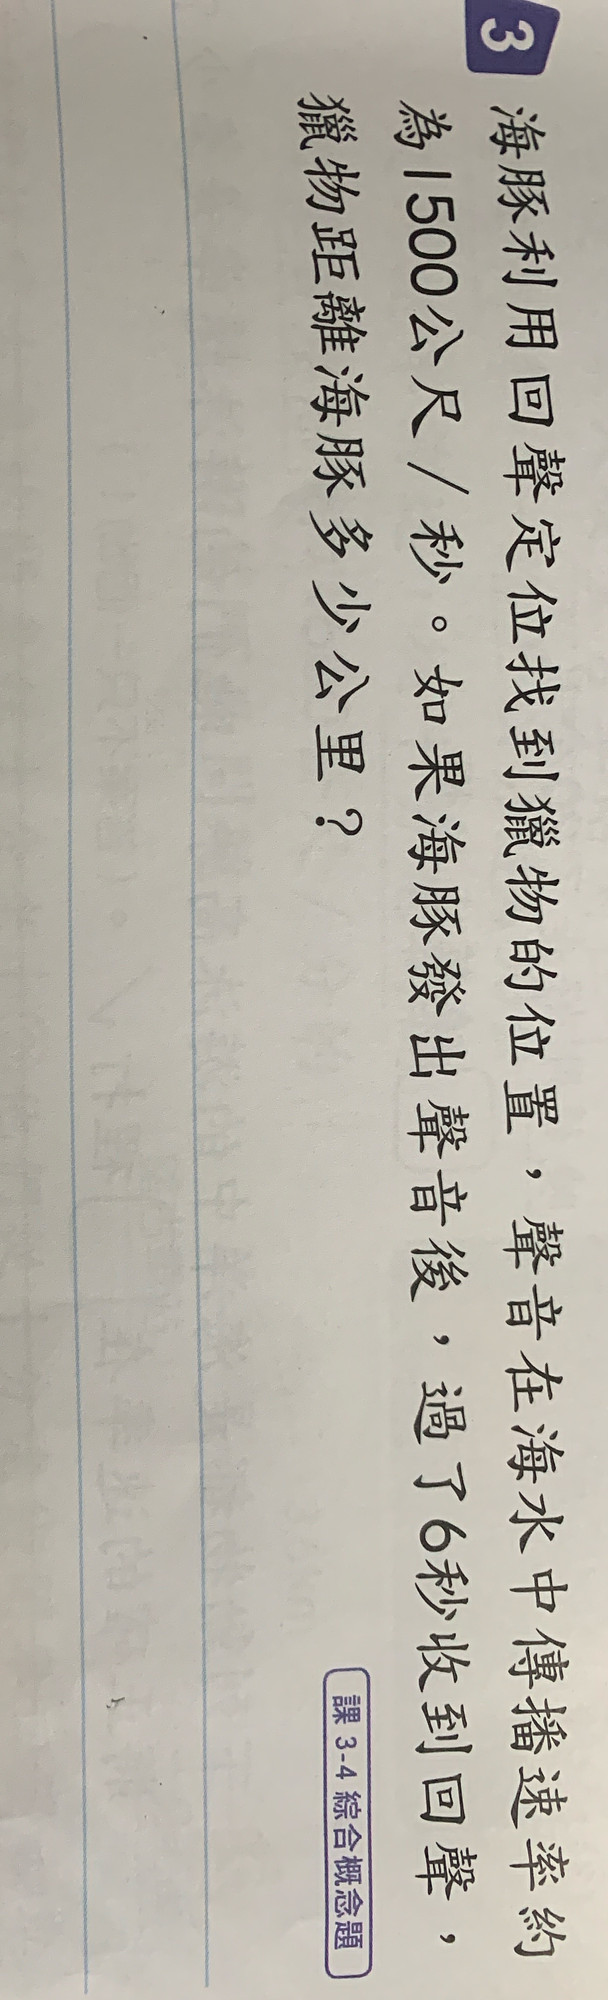 3
海豚利用回聲定位找到獵物的位置，聲音在海水中傳播速率約
為1500公尺／秒。如果海豚發出聲音後，過了6秒收到回聲，
獵物距離海豚多少公里？
課 3-4 綜合概念題